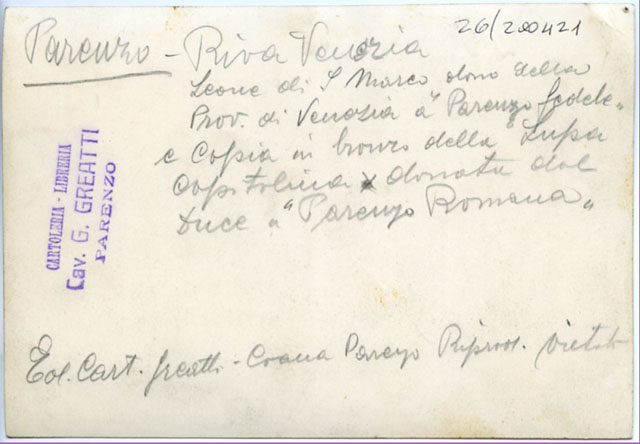 26/200421
Parenzo - Riva Venezia
Leone di S Marco dono della
Prov. di Venezia a "Parenzo fedele"
e Copia in bronzo della "Lupa
Capitolina x donata dal
Duce a "Parenzo Romana"
CARTOLERIA - LIBRERIA
Cav. G. GREATTI
PARENZO
Ed. Cart. Greatti - Parenzo Riprod. Vietat